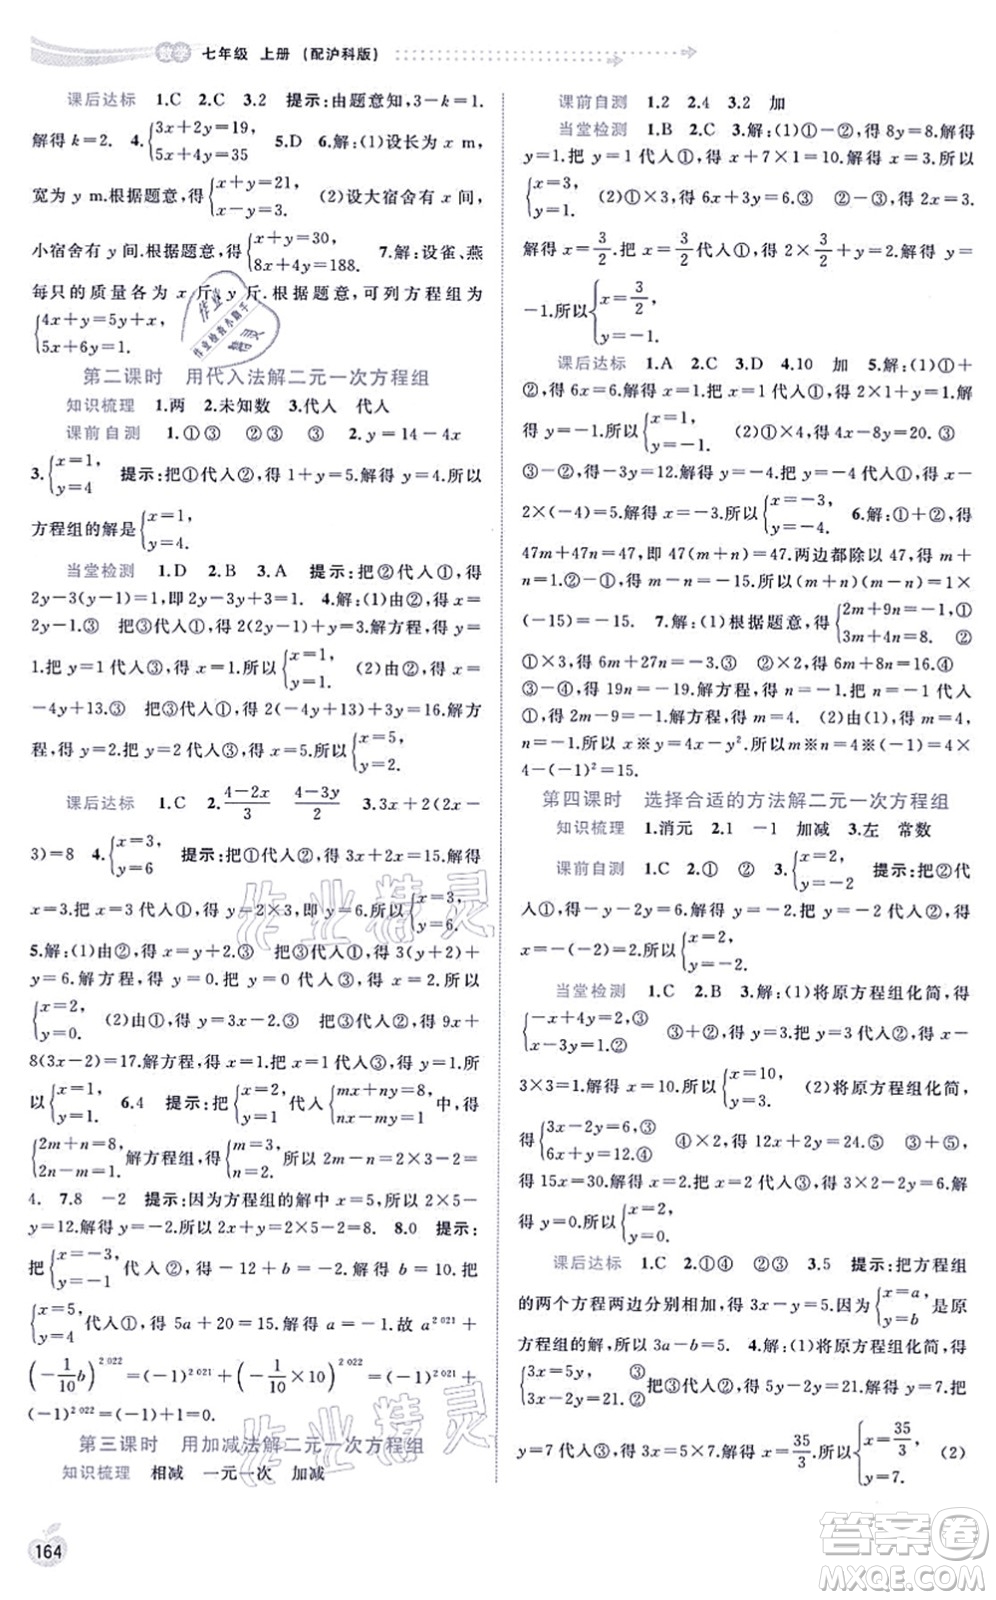 数学 七年级 上册 (配沪科版)
课后达标 1.C 2.C 3.2 提示:由题意知,3-k=1.
解得 k=2. 4.{3x+2y=19, 5x+4y=35 5.D 6.解:(1)设长为 x m,
宽为 y m.根据题意,得{x+y=21, x-y=3. (2)设大宿舍有 x 间,
小宿舍有 y 间.根据题意,得{x+y=30, 8x+4y=188. 7.解:设雀、燕
每只的质量各为 x 斤、y 斤.根据题意,可列方程组为
{4x+y=5y+x, 5x+6y=1.
第二课时 用代入法解二元一次方程组
知识梳理 1.两 2.未知数 3.代人 代人
课前自测 1.①③ ②③ ③ 2.y=14-4x
3.{x=1, y=4 提示:把①代人②,得1+y=5.解得 y=4.所以
方程组的解是{x=1, y=4.
当堂检测 1.D 2.B 3.A 提示:把②代人①,得
2y-3(y-1)=1,即2y-3y+3=1. 4.解:(1)由②,得 x=
2y.③ 把③代人①,得2(2y)-3y=1.解方程,得 y=
1.把 y=1 代人③,得 x=2.所以{x=2, y=1. (2)由②,得 x=
-4y+13.③ 把③代人①,得2(-4y+13)+3y=16.解方
程,得 y=2.把 y=2 代人③,得 x=5.所以{x=5, y=2.
课后达标 1.C 2.4-2x/3 4-3y/2 3.3x+2(2x-
3)=8 4.{x=3, y=6 提示:把①代人②,得3x+2x=15.解得
x=3.把 x=3 代人①,得 y=2×3,即 y=6.所以{x=3, y=6.
5.解:(1)由②,得 x=y+2.③ 把③代人①,得3(y+2)+
4y=6.解方程,得 y=0.把 y=0 代人③,得 x=2.所以
{x=2, y=0. (2)由①,得 y=3x-2.③ 把③代人②,得9x+
8(3x-2)=17.解方程,得 x=1.把 x=1 代人③,得 y=1.所
以{x=1, y=1. 6.4 提示:把{x=2, y=1代人{mx+ny=8, nx-my=1中,得
{2m+n=8, 2n-m=1.解方程组,得{m=3, n=2.所以2m-n=2×3-2=
4. 7.8 -2 提示:因为方程组的解中 x=5,所以2×5-
y=12.解得 y=-2.所以2x+y=2×5-2=8. 8.0 提示:
把{x=-3, y=-1代人②,得-12+b=-2.解得 b=10.把
{x=5, y=4代人①,得5a+20=15.解得 a=-1.故 a^2021+
(-1/10 b)^2022=(-1)^2021+(-1/10×10)^2022=(-1)^2021+
(-1)^2022=(-1)+1=0.
第三课时 用加减法解二元一次方程组
知识梳理 相减 一元一次 加减
164
课前自测 1.2 2.4 3.2 加
当堂检测 1.B 2.C 3.解:(1)①-②,得8y=8.解得
y=1.把 y=1 代人①,得 x+7×1=10.解得 x=3.所以
{x=3, y=1. (2)①×3,得6x+3y=6.③ ③-②,得2x=3.
解得 x=3/2.把 x=3/2代人①,得2×3/2+y=2.解得 y=
-1.所以{x=3/2, y=-1.
课后达标 1.A 2.C 3.D 4.10 加 5.解:(1)①+
②,得6x=6.解得 x=1.把 x=1 代人①,得2×1+y=1.解
得 y=-1.所以{x=1, y=-1. (2)①×4,得4x-8y=20.③
③-②,得-3y=12.解得 y=-4.把 y=-4 代人①,得 x-
2×(-4)=5.解得 x=-3.所以{x=-3, y=-4. 6.解:①+②,得
47m+47n=47,即47(m+n)=47.两边都除以47,得 m+
n=1.①-②,得 m-n=-15.所以 m²-n²=1×
(-15)=-15. 7.解:(1)根据题意,得{2m+9n=-1,① 3m+4n=8. ②
①×3-②×2,得19n=-19.解方程,得 n=-1.把 n=-1 代人
①,得2m-9=-1.解方程,得 m=4. (2)由(1),得 m=4,
n=-1.所以 x※y=4x-y².所以 m※n=4※(-1)=4×
4-(-1)²=15.
第四课时 选择合适的方法解二元一次方程组
知识梳理 1.消元 2.1 -1 加减 3.左 常数
课前自测 1.C 2.① ② 3.{x=2, y=-2 提示:把②代
人①,得-y-3y=8.解得 y=-2.把 y=-2 代人②,得
x=-(-2)=2.所以{x=2, y=-2.
当堂检测 1.C 2.B 3.解:(1)将原方程组化简,得
{-x+4y=2,① x-3y=1.② ①+②,得 y=3.把 y=3 代人②,得 x-
3×3=1.解得 x=10.所以{x=10, y=3. (2)将原方程组化简,
得{3x-2y=6,③ 6x+y=12.④ ④×2,得12x+2y=24.⑤ ③+⑤,
得15x=30.解得 x=2.把 x=2 代人③,得3×2-2y=6.解
得 y=0.所以{x=2, y=0.
课后达标 1.C 2.①④ ②③ 3.5 提示:把方程组
的两个方程两边分别相加,得3x-y=5.因为{x=a, y=b是原
方程组的解,所以3a-b=5. 4.解:(1)将原方程组化简,得
{3x=5y,③ 3x=2y+21.④ 把③代人④,得5y=2y+21.解得 y=7.把
y=7 代人③,得3x=5×7.解得 x=35/3.所以{x=35/3, y=7. (2)
作业
作业检查小助手
精灵
作业精灵
作业精灵
答案圈
MXQE.COM